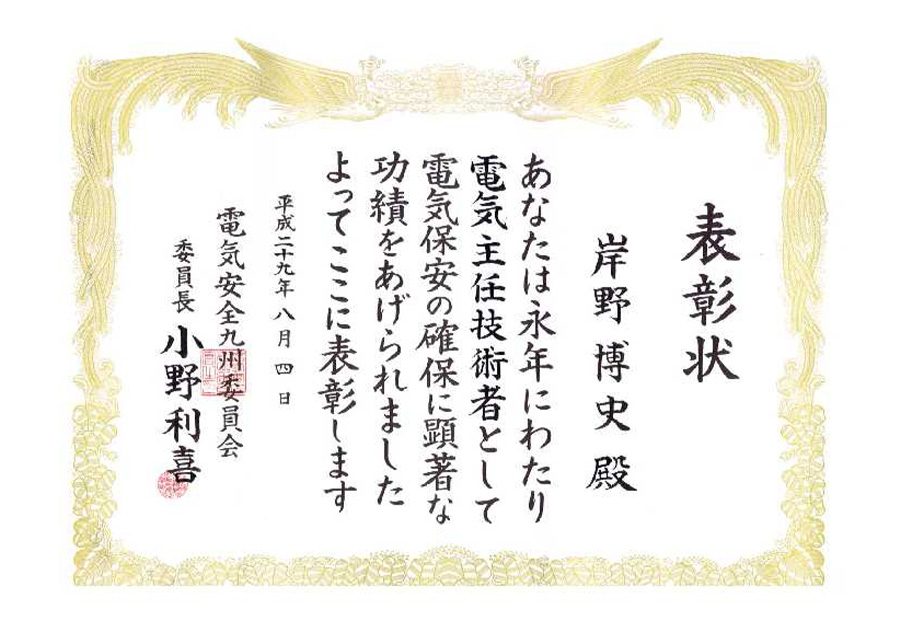 表彰状
岸野博史殿
あなたは永年にわたり
電気主任技術者として
電気保安の確保に顕著な
功績をあげられました
よってここに表彰します
平成二十九年八月四日
電気安全九州委員会
委員長 小野利喜